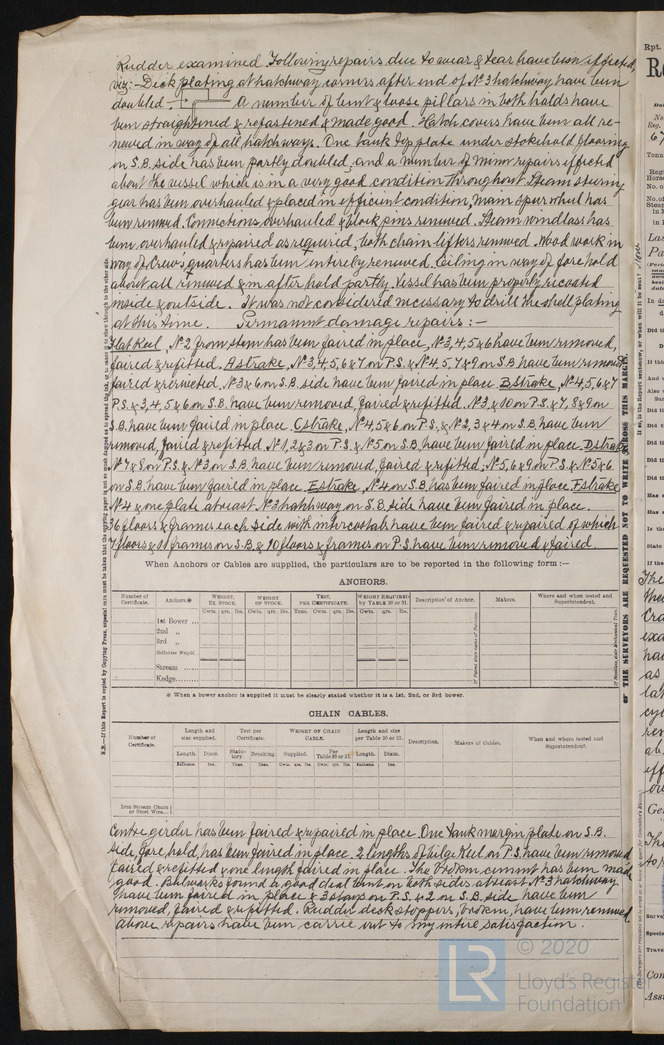 Rudder examined. Following repairs due to wear & tear have been effected,
viz:- Deck plating at hatchway corners after end of No 3 hatchway have been
doubled. A number of bent & loose pillars in both holds have
been straightened & refastened & made good. Hatch covers have been all re-
newed in way of all hatchways. One tank top plate under stokehold flooring
on S.B. side has been partly doubled, and a number of minor repairs effected
about the vessel which is in a very good condition throughout. Steam steering
gear has been overhauled & placed in efficient condition, main spur wheel has
been renewed. Connections overhauled & block pins renewed. Steam windlass has
been overhauled & repaired as required, both chain lifters renewed. Wood work in
way of Crew's quarters has been entirely renewed. Ceiling in way of fore hold
about all renewed & in after hold partly. Vessel has been properly recoated
inside & outside. It was not considered necessary to drill the shell plating
at this time. Permanent damage repairs:-
Flat Keel, No 2 from stem has been faired in place, No 3, 4, 5 & 6 have been removed,
faired & refitted. A strake, No 3, 4, 5, 6 & 7 on P.S. & No 4, 5, 7 & 9 on S.B. have been removed
faired & riveted. No 3 & 6 on S.B. side have been faired in place B strake, No 4, 5, 6 & 7
P.S. & 3, 4, 5 & 6 on S.B. have been removed, faired & refitted. No 3 & 10 on P.S. & 7, 8 & 9 on
S.B. have been faired in place. C strake, No 4, 5 & 6 on P.S. & No 2, 3 & 4 on S.B. have been
removed, faired & refitted. No 1, 2 & 3 on P.S. & No 5 on S.B. have been faired in place. D strake
No 7 & 8 on P.S. & No 3 on S.B. have been removed, faired & refitted, No 5, 6 & 9 on P.S. & No 5 & 6
on S.B. have been faired in place E strake, No 4 on S.B. has been faired in place F strake
No 4 & one plate abreast No 3 hatchway on S.B. side have been faired in place.
36 floors & frames each side with intercostals have been faired & repaired of which
7 floors & 11 frames on S.B. & 10 floors & frames on P.S. have been removed & faired.
When Anchors or Cables are supplied, the particulars are to be reported in the following form:—
ANCHORS.
Number of Certificate. Anchors.* WEIGHT, EX STOCK. WEIGHT OF STOCK. TEST, PER CERTIFICATE. WEIGHT REQUIRED by TABLE 30 or 31. Description of Anchor. Makers. Where and when tested and Superintendent.
Cwts. qrs. lbs. Cwts. qrs. lbs. Tons. Cwt. qrs. lbs. Cwts. qrs. lbs.
1st Bower ...
2nd „
3rd „
Collective Weight.
Stream ......
Kedge........
* When a bower anchor is supplied it must be clearly stated whether it is a 1st, 2nd, or 3rd bower.
CHAIN CABLES.
Number of Certificate. Length and size supplied. Test per Certificate. WEIGHT OF CHAIN CABLE. Length and size per Table 30 or 31. Description. Makers of Cables. When and where tested and Superintendent.
Length. Diam. Statutory. Breaking. Supplied. Per Table 30 or 31. Length. Diam.
Fathoms. Ins. Tons. Tons. Cwts. qrs. lbs. Cwts. qrs. lbs. Fathoms. Ins.
Iron Stream Chain or Steel Wire...
Centre girder has been faired & repaired in place. One tank margin plate on S.B.
side, fore hold, has been faired in place. 2 lengths of bilge keel on P.S. have been removed,
faired & refitted & one length faired in place. The broken cement has been made
good. Bulwarks found a good deal bent on both sides abreast No 3 hatchway
have been faired in place & 3 stays on P.S. & 2 on S.B. side have been
removed, faired & refitted. Rudder deck stoppers, broken, have been renewed
above repairs have been carrie out to my entire satisfaction.
THE SURVEYORS ARE REQUESTED NOT TO WRITE ACROSS THIS MARGIN.
© 2020
LR
Lloyd's Register
Foundation
Rpt.